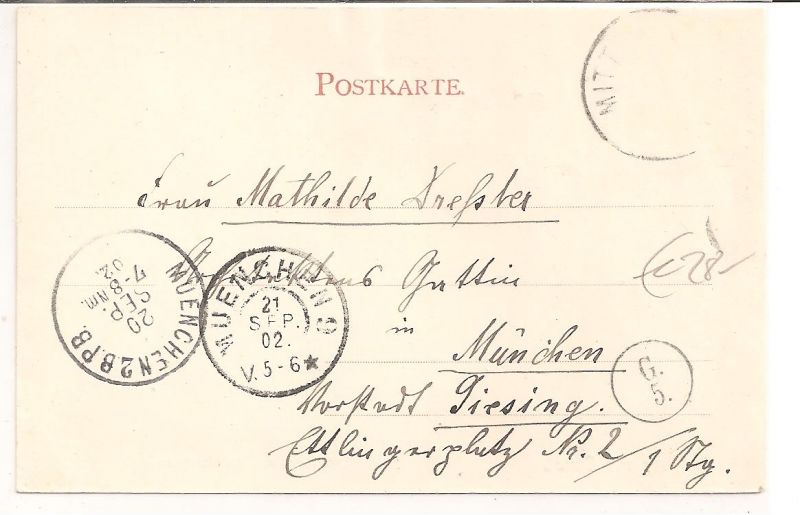 POSTKARTE.
MITT
Frau Mathilde Dreßler
Gattin
MUENCHEN 2 B.P.B.
20 SEP. 7-8 NM. 02.
MUENCHEN 9
21 SEP. 02. V. 5-6
28
in
München
G. 5.
Vorstadt Giesing.
Ettlingerplatz Nr. 2 / 1 Stg.